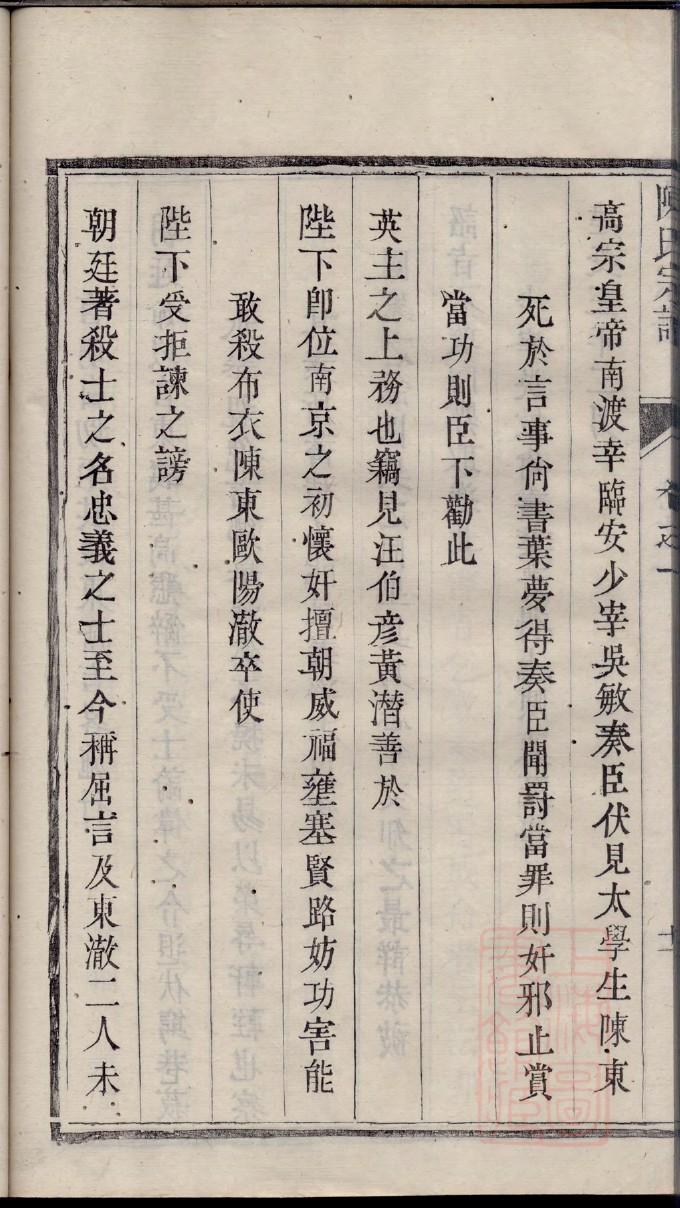 陳氏宗譜
卷之一
高宗皇帝南渡幸臨安少宰吳敏奏臣伏見太學生陳東
死於言事尙書葉夢得奏臣聞罰當罪則奸邪止賞
當功則臣下勸此
英主之上務也竊見汪伯彦黃潛善於
陛下卽位南京之初懷奸擅朝威福壅塞賢路妨功害能
敢殺布衣陳東歐陽澈卒使
陛下受拒諫之謗
朝廷著殺士之名忠義之士至今稱屈言及東澈二人未